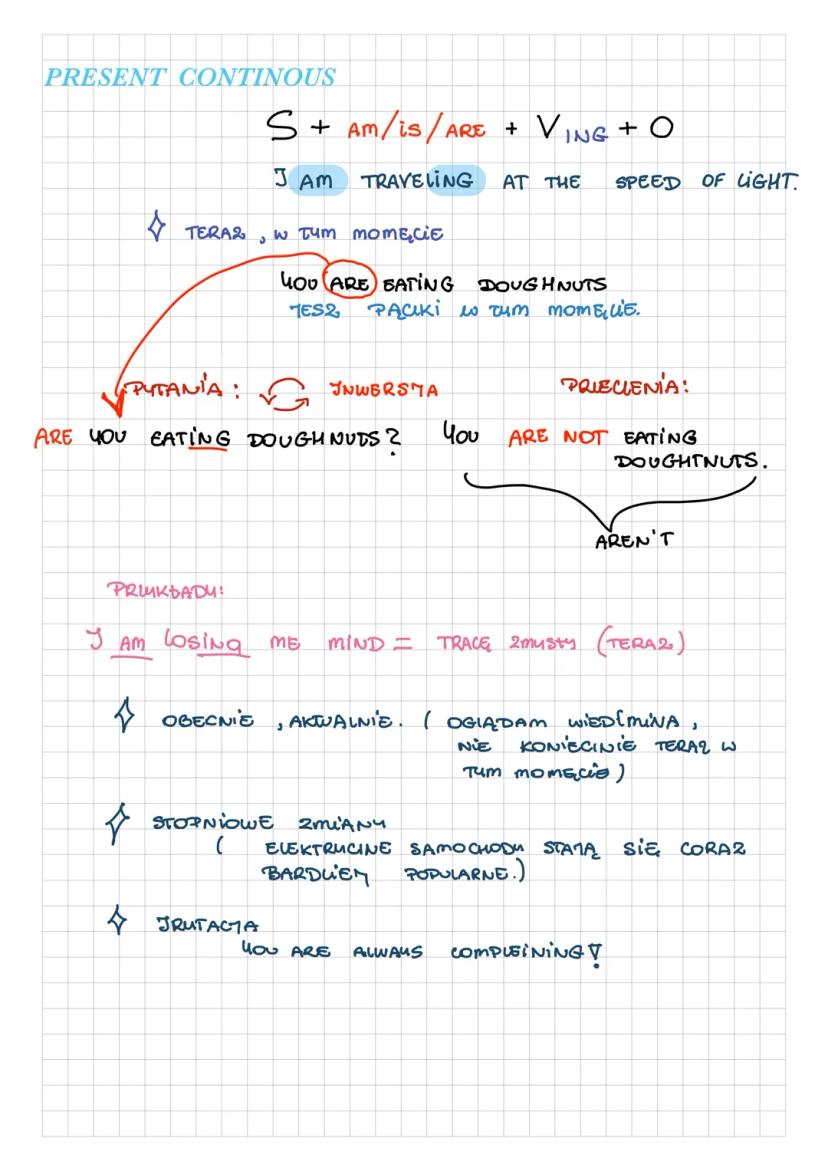 PRESENT CONTINOUS
S + AM/IS/ARE + VING + O
I AM TRAVELING AT THE SPEED OF LIGHT.
TERAZ, W TYM MOMĘCIE
YOU ARE EATING DOUGHNUTS
JESZ PĄCZKI W TYM MOMĘCIE.
PYTANIA: INWERSJA
PRZECZENIA:
ARE YOU EATING DOUGHNUTS? YOU ARE NOT EATING
DOUGHTNUTS.
AREN'T
PRZYKŁADY:
I AM LOSING ME MIND = TRACĘ ZMYSŁY (TERAZ)
OBECNIE, AKTUALNIE. (OGLĄDAM WIEDŹMINA,
NIE KONIECZNIE TERAZ W
TYM MOMĘCIE)
STOPNIOWE ZMIANY
(ELEKTRYCZNE SAMOCHODY STAJĄ SIĘ CORAZ
BARDZIEJ POPULARNE.)
IRYTACJA
YOU ARE ALWAYS COMPLEINING!